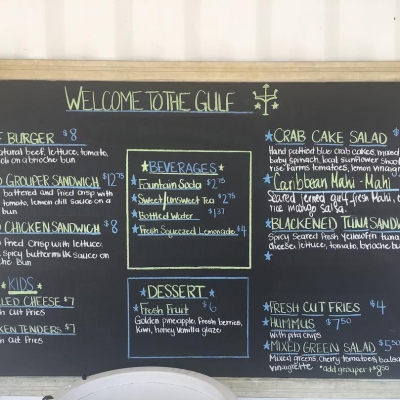 WELCOME TO THE GULF
BURGER $8
natural beef, lettuce, tomato,
on a brioche bun
GROUPER SANDWICH $12.75
battered and fried crisp with
tomato, lemon dill sauce on a
bun
CHICKEN SANDWICH $8
fried crisp with lettuce.
spicy buttermilk sauce on
the Bun
KIDS
CHEESE $7
cut Fries
TENDERS $7
cut Fries
BEVERAGES
Fountain Soda $2.75
Sweet/Unsweet Tea $2.75
Bottled Water $1.37
Fresh Squeezed Lemonade $4
DESSERT
Fresh Fruit $6
Golden pineapple, Fresh berries,
Kiwi, honey vanilla glaze
CRAB CAKE SALAD $
Hand pattied blue crab cakes, mixed
baby spinach, local sunflower shoots
rise Farms tomatoes, lemon vinaigr
Caribbean Mahi-Mahi
Seared jerked gulf fresh Mahi,
rice mango salsa.
BLACKENED TUNA SANDW
Spicy Seared fresh yellowfin tuna
cheese, lettuce, tomato, brioche bun
FRESH CUT FRIES $4
HUMMUS $7.50
with pita chips
MIXED GREEN SALAD $5.50
Mixed greens, cherry tomatoes, balsa
vinaigrette *add grouper +$8.50